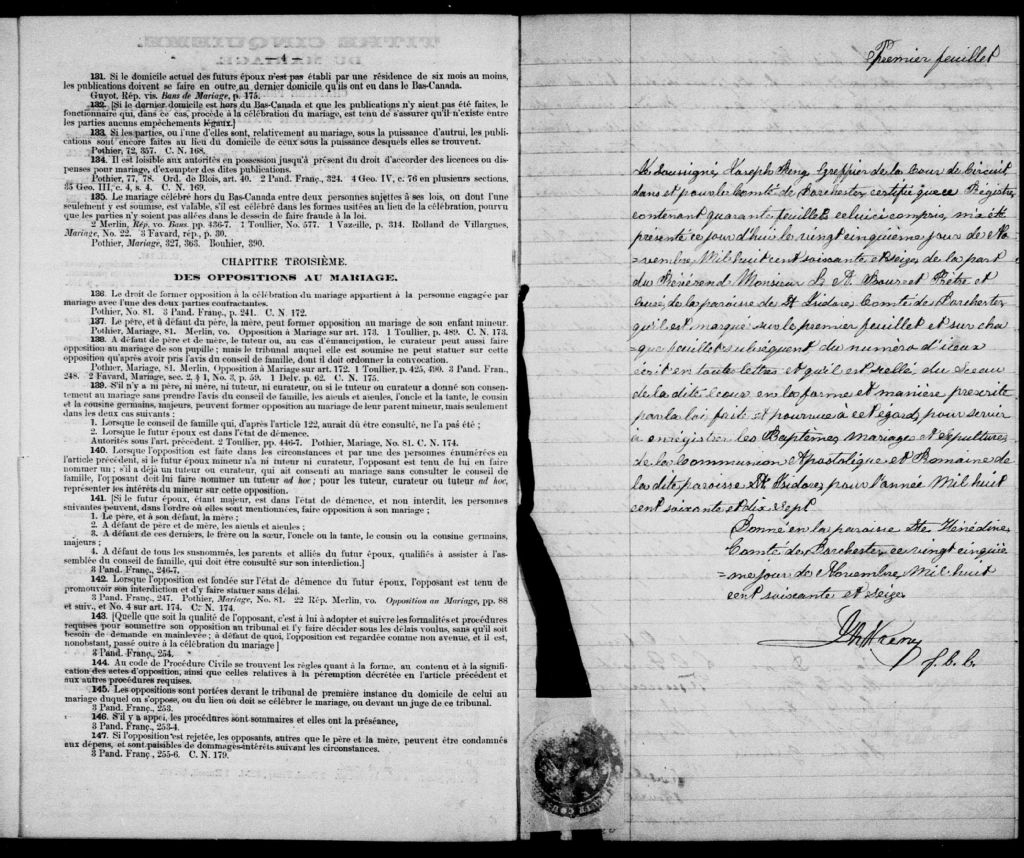 4
131. Si le domicile actuel des futurs époux n'est pas établi par une résidence de six mois au moins,
les publications doivent se faire en outre au dernier domicile qu'ils ont eu dans le Bas-Canada.
Guyot, Rép. vis. Bans de Mariage, p. 175.
132. [Si le dernier domicile est hors du Bas-Canada et que les publications n'y aient pas été faites, le
fonctionnaire qui, dans ce cas, procède à la célébration du mariage, est tenu de s'assurer qu'il n'existe entre
les parties aucuns empêchements légaux.]
133. Si les parties, ou l'une d'elles sont, relativement au mariage, sous la puissance d'autrui, les publi-
cations sont encore faites au lieu du domicile de ceux sous la puissance desquels elles se trouvent.
Pothier, 72, 357. C. N. 168.
134. Il est loisible aux autorités en possession jusqu'à présent du droit d'accorder des licences ou dis-
penses pour mariage, d'exempter des dites publications.
Pothier, 77, 78. Ord. de Blois, art. 40. 2 Pand. Franç., 324. 4 Geo. IV, c. 76 en plusieurs sections.
35 Geo. III, c. 4, s. 4. C. N. 169.
135. Le mariage célébré hors du Bas-Canada entre deux personnes sujettes à ses lois, ou dont l'une
seulement y est soumise, est valable, s'il est célébré dans les formes usitées au lieu de la célébration, pourvu
que les parties n'y soient pas allées dans le dessein de faire fraude à la loi.
2 Merlin, Rép. vo. Bans. pp. 436-7. 1 Toullier, No. 577. 1 Vazeille, p. 314. Rolland de Villargues,
Mariage, No. 22. 3 Favard, rép., p. 30.
Pothier, Mariage, 327, 363. Bouhier, 390.
CHAPITRE TROISIÈME.
DES OPPOSITIONS AU MARIAGE.
136. Le droit de former opposition à la célébration du mariage appartient à la personne engagée par
mariage avec l'une des deux parties contractantes.
Pothier, No. 81. 3 Pand. Franç., p. 241. C. N. 172.
137. Le père, et à défaut du père, la mère, peut former opposition au mariage de son enfant mineur.
Pothier, Mariage, 81. Merlin, vo. Opposition à Mariage sur art. 173. 1 Toullier, p. 489. C. N. 173.
138. A défaut de père et de mère, le tuteur ou, au cas d'émancipation, le curateur peut aussi faire
opposition au mariage de son pupille; mais le tribunal auquel elle est soumise ne peut statuer sur cette
opposition qu'après avoir pris l'avis du conseil de famille, dont il doit ordonner la convocation.
Pothier, Mariage, 81. Merlin, Opposition à Mariage sur art. 172. 1 Toullier, p. 425, 490. 3 Pand. Fran.,
248. 2 Favard, Mariage, sec. 2, § 1, No. 3, p. 59. 1 Delv. p. 62. C. N. 175.
139. S'il n'y a ni père, ni mère, ni tuteur, ni curateur, ou si le tuteur ou curateur a donné son consen-
tement au mariage sans prendre l'avis du conseil de famille, les aïeuls et aïeules, l'oncle et la tante, le cousin
et la cousine germains, majeurs, peuvent former opposition au mariage de leur parent mineur, mais seulement
dans les deux cas suivants :
1. Lorsque le conseil de famille qui, d'après l'article 122, aurait dû être consulté, ne l'a pas été ;
2. Lorsque le futur époux est dans l'état de démence.
Autorités sous l'art. précédent. 2 Toullier, pp. 446-7. Pothier, Mariage, No. 81. C. N. 174.
140. Lorsque l'opposition est faite dans les circonstances et par une des personnes énumérées en
l'article précédent, si le futur époux mineur n'a ni tuteur ni curateur, l'opposant est tenu de lui en faire
nommer un; s'il a déjà un tuteur ou curateur, qui ait consenti au mariage sans consulter le conseil de
famille, l'opposant doit lui faire nommer un tuteur ad hoc ; pour les tuteur, curateur ou tuteur ad hoc,
représenter les intérêts du mineur sur cette opposition.
141. [Si le futur époux, étant majeur, est dans l'état de démence, et non interdit, les personnes
suivantes peuvent, dans l'ordre où elles sont mentionnées, faire opposition à son mariage ;
1. Le père, et à son défaut, la mère ;
2. A défaut de père et de mère, les aïeuls et aïeules ;
3. A défaut de ces derniers, le frère ou la sœur, l'oncle ou la tante, le cousin ou la cousine germains,
majeurs ;
4. A défaut de tous les susnommés, les parents et alliés du futur époux, qualifiés à assister à l'as-
semblée du conseil de famille, qui doit être consulté sur son interdiction.]
3 Pand. Franç., 246-7.
142. Lorsque l'opposition est fondée sur l'état de démence du futur époux, l'opposant est tenu de
promouvoir son interdiction et d'y faire statuer sans délai.
3 Pand. Franç., 247. Pothier, Mariage, No. 81. 22 Rép. Merlin, vo. Opposition au Mariage, pp. 88
et suiv., et No. 4 sur art. 174. C. N. 174.
143. [Quelle que soit la qualité de l'opposant, c'est à lui à adopter et suivre les formalités et procédures
requises pour soumettre son opposition au tribunal et l'y faire décider sous les délais voulus, sans qu'il soit
besoin de demande en mainlevée; à défaut de quoi, l'opposition est regardée comme non avenue, et il est,
nonobstant, passé outre à la célébration du mariage]
3 Pand. Franç., 254.
144. Au code de Procédure Civile se trouvent les règles quant à la forme, au contenu et à la signifi-
cation des actes d'opposition, ainsi que celles relatives à la péremption décrétée en l'article précédent et
aux autres procédures requises.
145. Les oppositions sont portées devant le tribunal de première instance du domicile de celui au
mariage duquel on s'oppose, ou du lieu où doit se célébrer le mariage, ou devant un juge de ce tribunal.
3 Pand. Franç., 253.
146. S'il y a appel, les procédures sont sommaires et elles ont la préséance,
3 Pand. Franç., 253-4.
147. Si l'opposition est rejetée, les opposants, autres que le père et la mère, peuvent être condamnés
aux dépens, et sont passibles de dommages-intérêts suivant les circonstances.
3 Pand. Franç., 255-6. C. N. 179.
Premier feuillet
Je Soussigné, Joseph Reny Greffier de la Cour de Circuit
dans et pour le Comté de Dorchester certifie que ce Régistre
contenant quarante feuillets celui ci compris, m'a été
présenté ce jour d'hui le vingt cinquième jour de No-
vembre Mil huit cent soixante et seize de la part
du Révérend Monsieur L. A. Bourret Prêtre et
Curé, de la paroisse de St Isidore, Comté de Dorchester
qu'il est marqué sur le premier feuillet et sur cha
que feuillet subséquent du numéro d'iceux
écrit en toutes lettres et qu'il est scellé, du Sceau
de la dite Cour en la forme et manière prescrite
par la loi faite et pourvue à cet égard, pour servir
à enregistrer les Baptêmes, Mariages et Sépultures
de la Communion Apostolique et Romaine de
la dite paroisse St Isidore, pour l'année Mil huit
cent soixante et dix sept
Donné en la paroisse Ste Hénédine
Comté de Dorchester, ce vingt cinquiè
=me jour de Novembre Mil huit
cent soixante et seize
g. c. c.